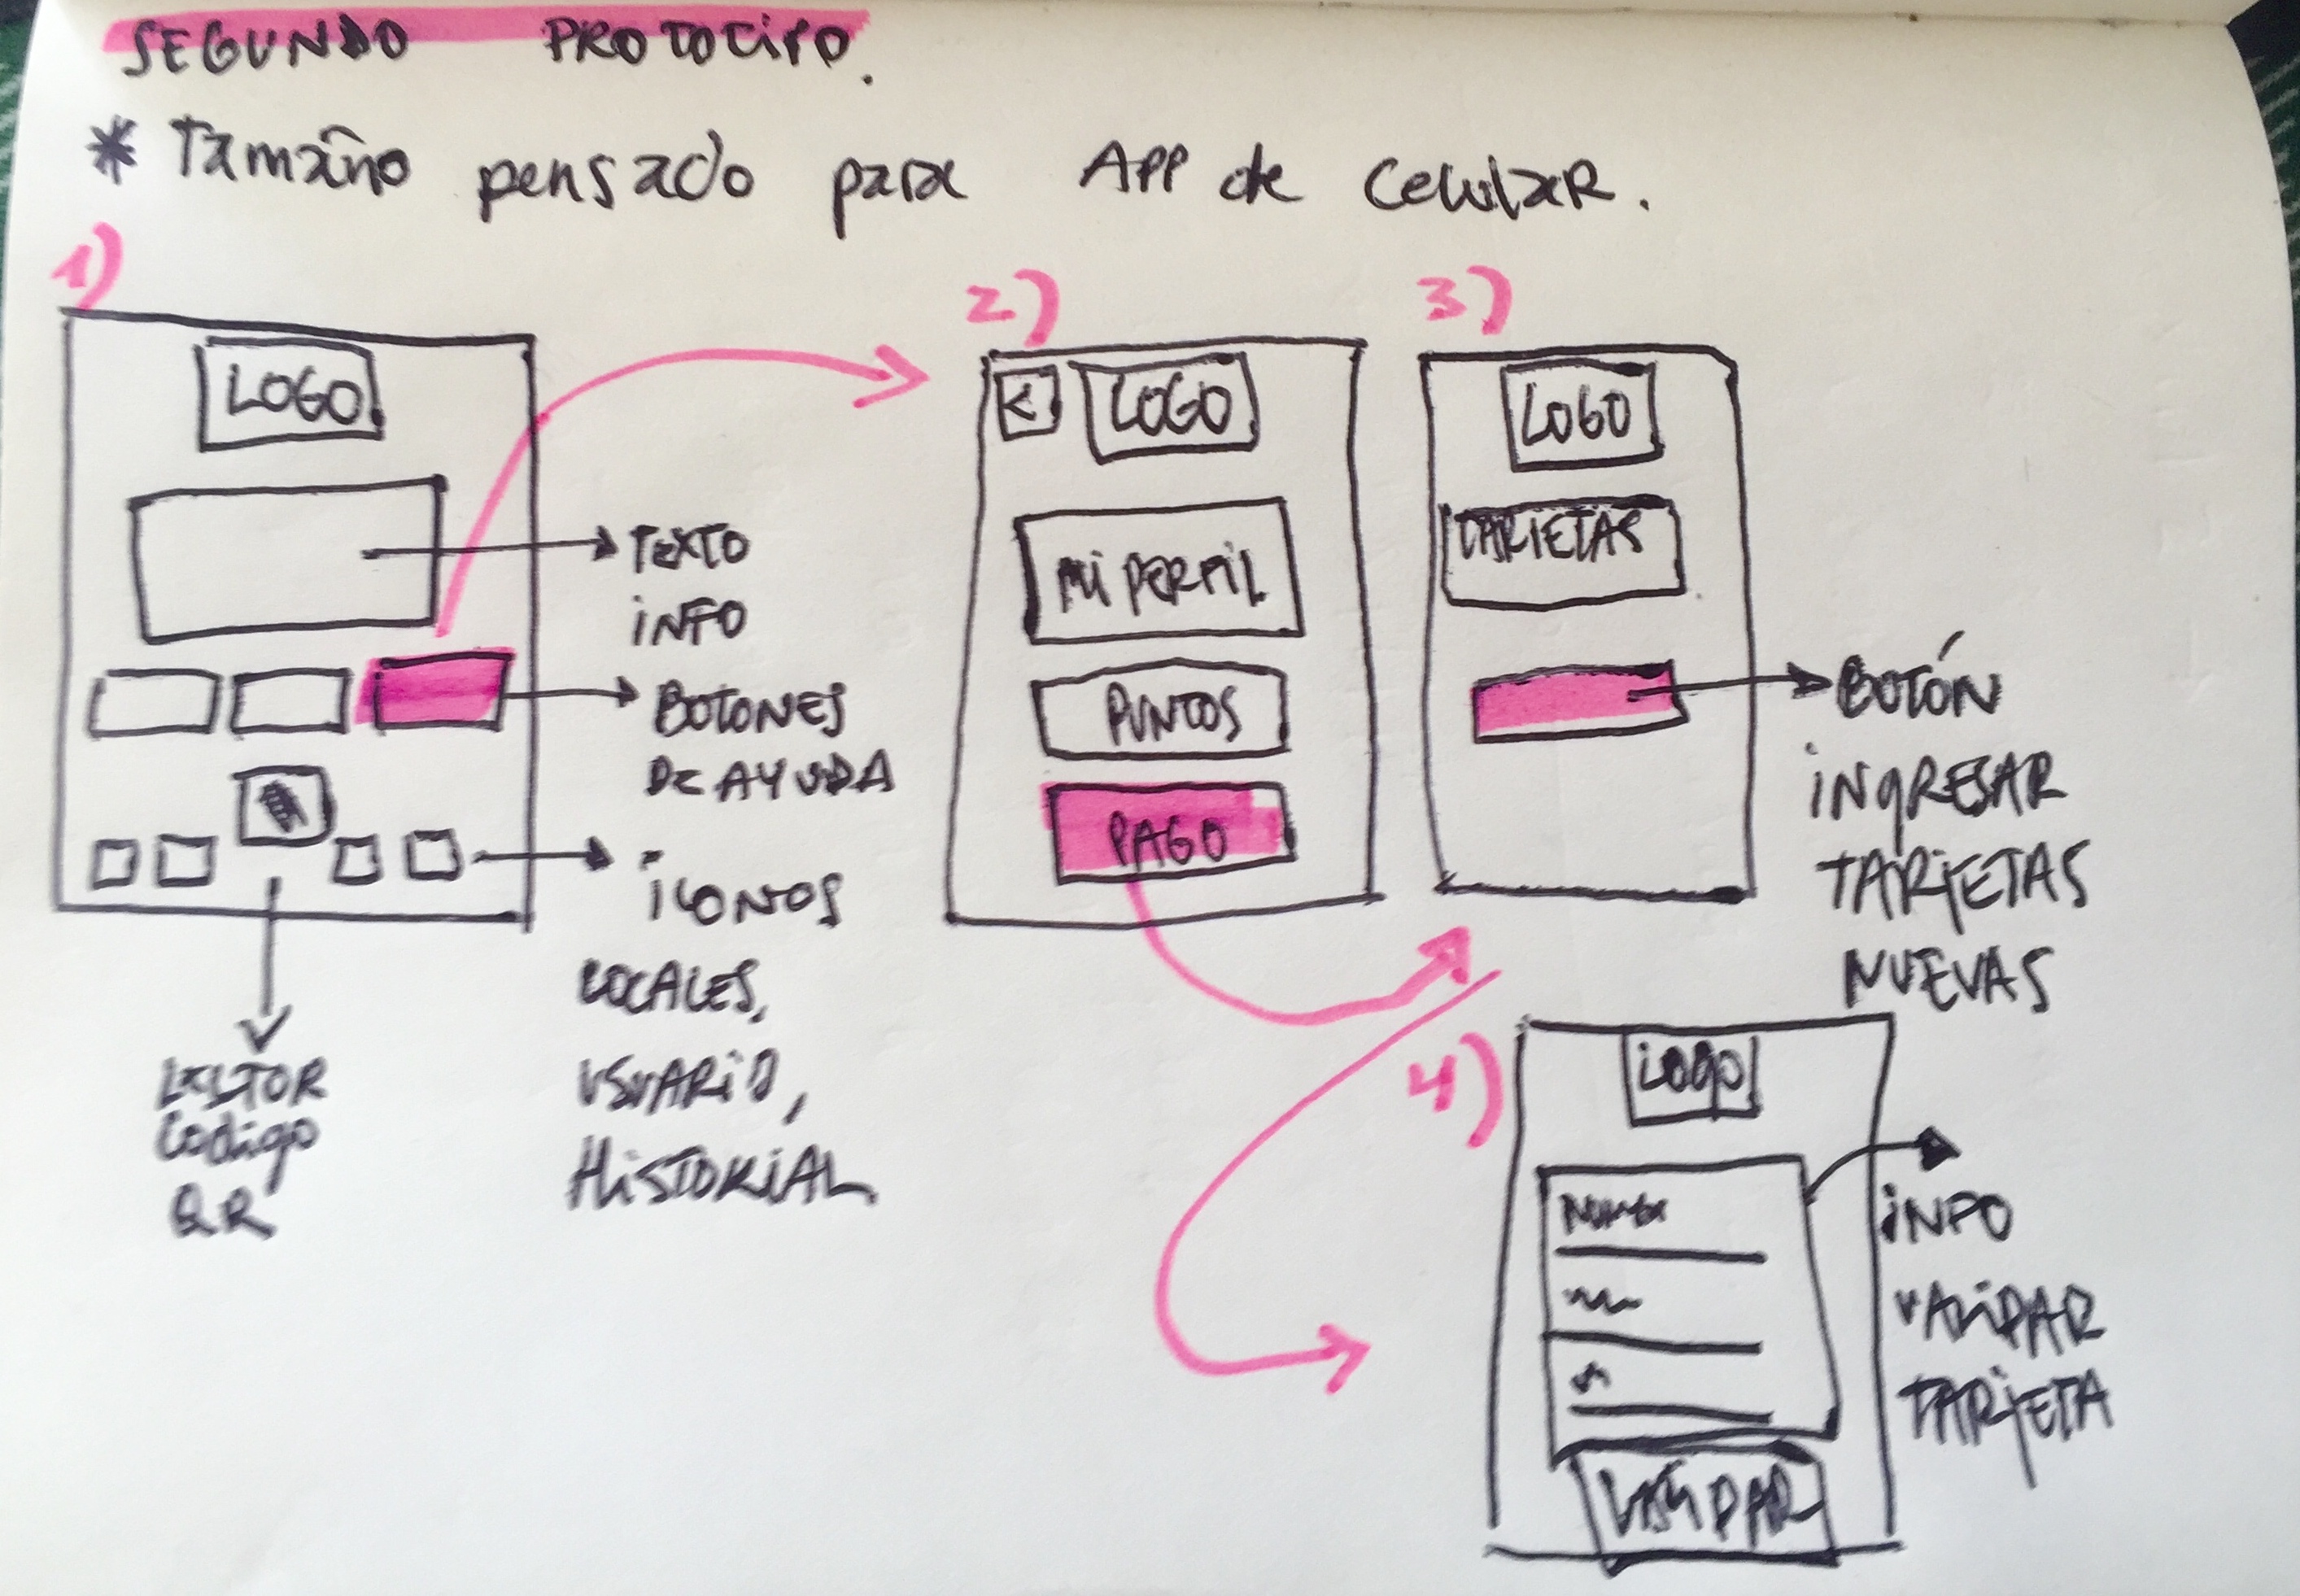 SEGUNDO PROTOTIPO.
* Tamaño pensado para APP de CeluLaR.
1)
LOGO
TEXTO
iNFO
BOTONES
DE AYUDA
iCONOS
LOCALES,
USUARiO,
HiSTORiAL
LECTOR
Codigo
QR
2)
<
LOGO
Mi PERFiL
PUNTOS
PAGO
3)
LOGO
TARJETAS
BOTÓN
iNgRESAR
TARjETAS
NUEVAS
4)
LOgO
iNFO
VALiDAR
TARjETA
VALiDAR